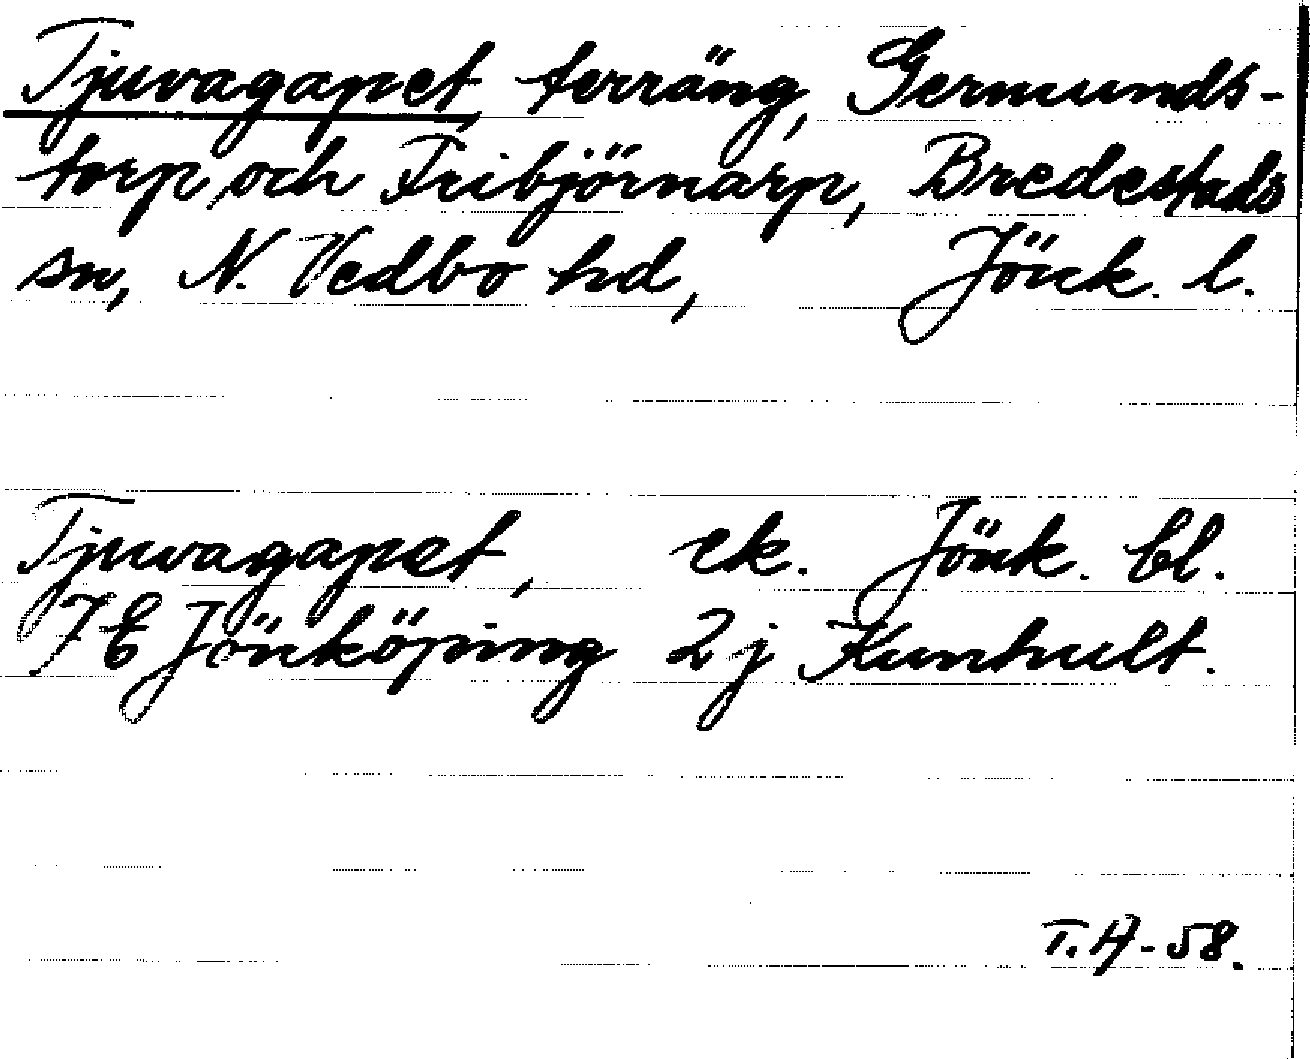 Tjuvagapet, terräng, Germunds-
torp och Fribjörnarp, Bredestads
sn, N. Vedbo hd, Jönk. l.
Tjuvagapet, ek. Jönk. bl.
7E Jönköping 2j Kunhult.
T.A-58.